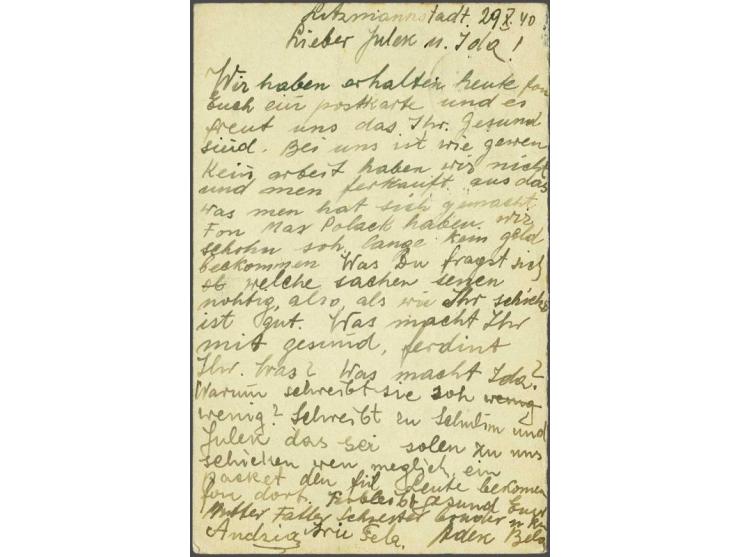 Litzmannstadt. 29 X 40
Lieber Julek u. Ida!
Wir haben erhalten heute fon
Euch ein postkarte und es
freut uns das Ihr. Gesund
sind. Bei uns ist wie gewen
Kein arbeit haben wir nicht
und men ferkauft aus das
was men hat sich gemacht.
Fon Max Polack haben wir
schohn soh lange kein geld
beckommen Was Du fragst sich
welche sachen senen
nohtig, also, als wie Ihr schickt
ist gut. Was macht Ihr
mit gesund, ferdint
Ihr. Was? Was macht Ida?
Warum schreibt sie soh wenig
wenig? Schreibt zu Schulim und
Julek das sei solen zu uns
schicken wen meglich, ein
packet den fil Leute bekomen
fon dort. Ferbleibt gesund Euer
Mutter Fatter Schwester bruder u.
Andzia Fela. Adek Bela